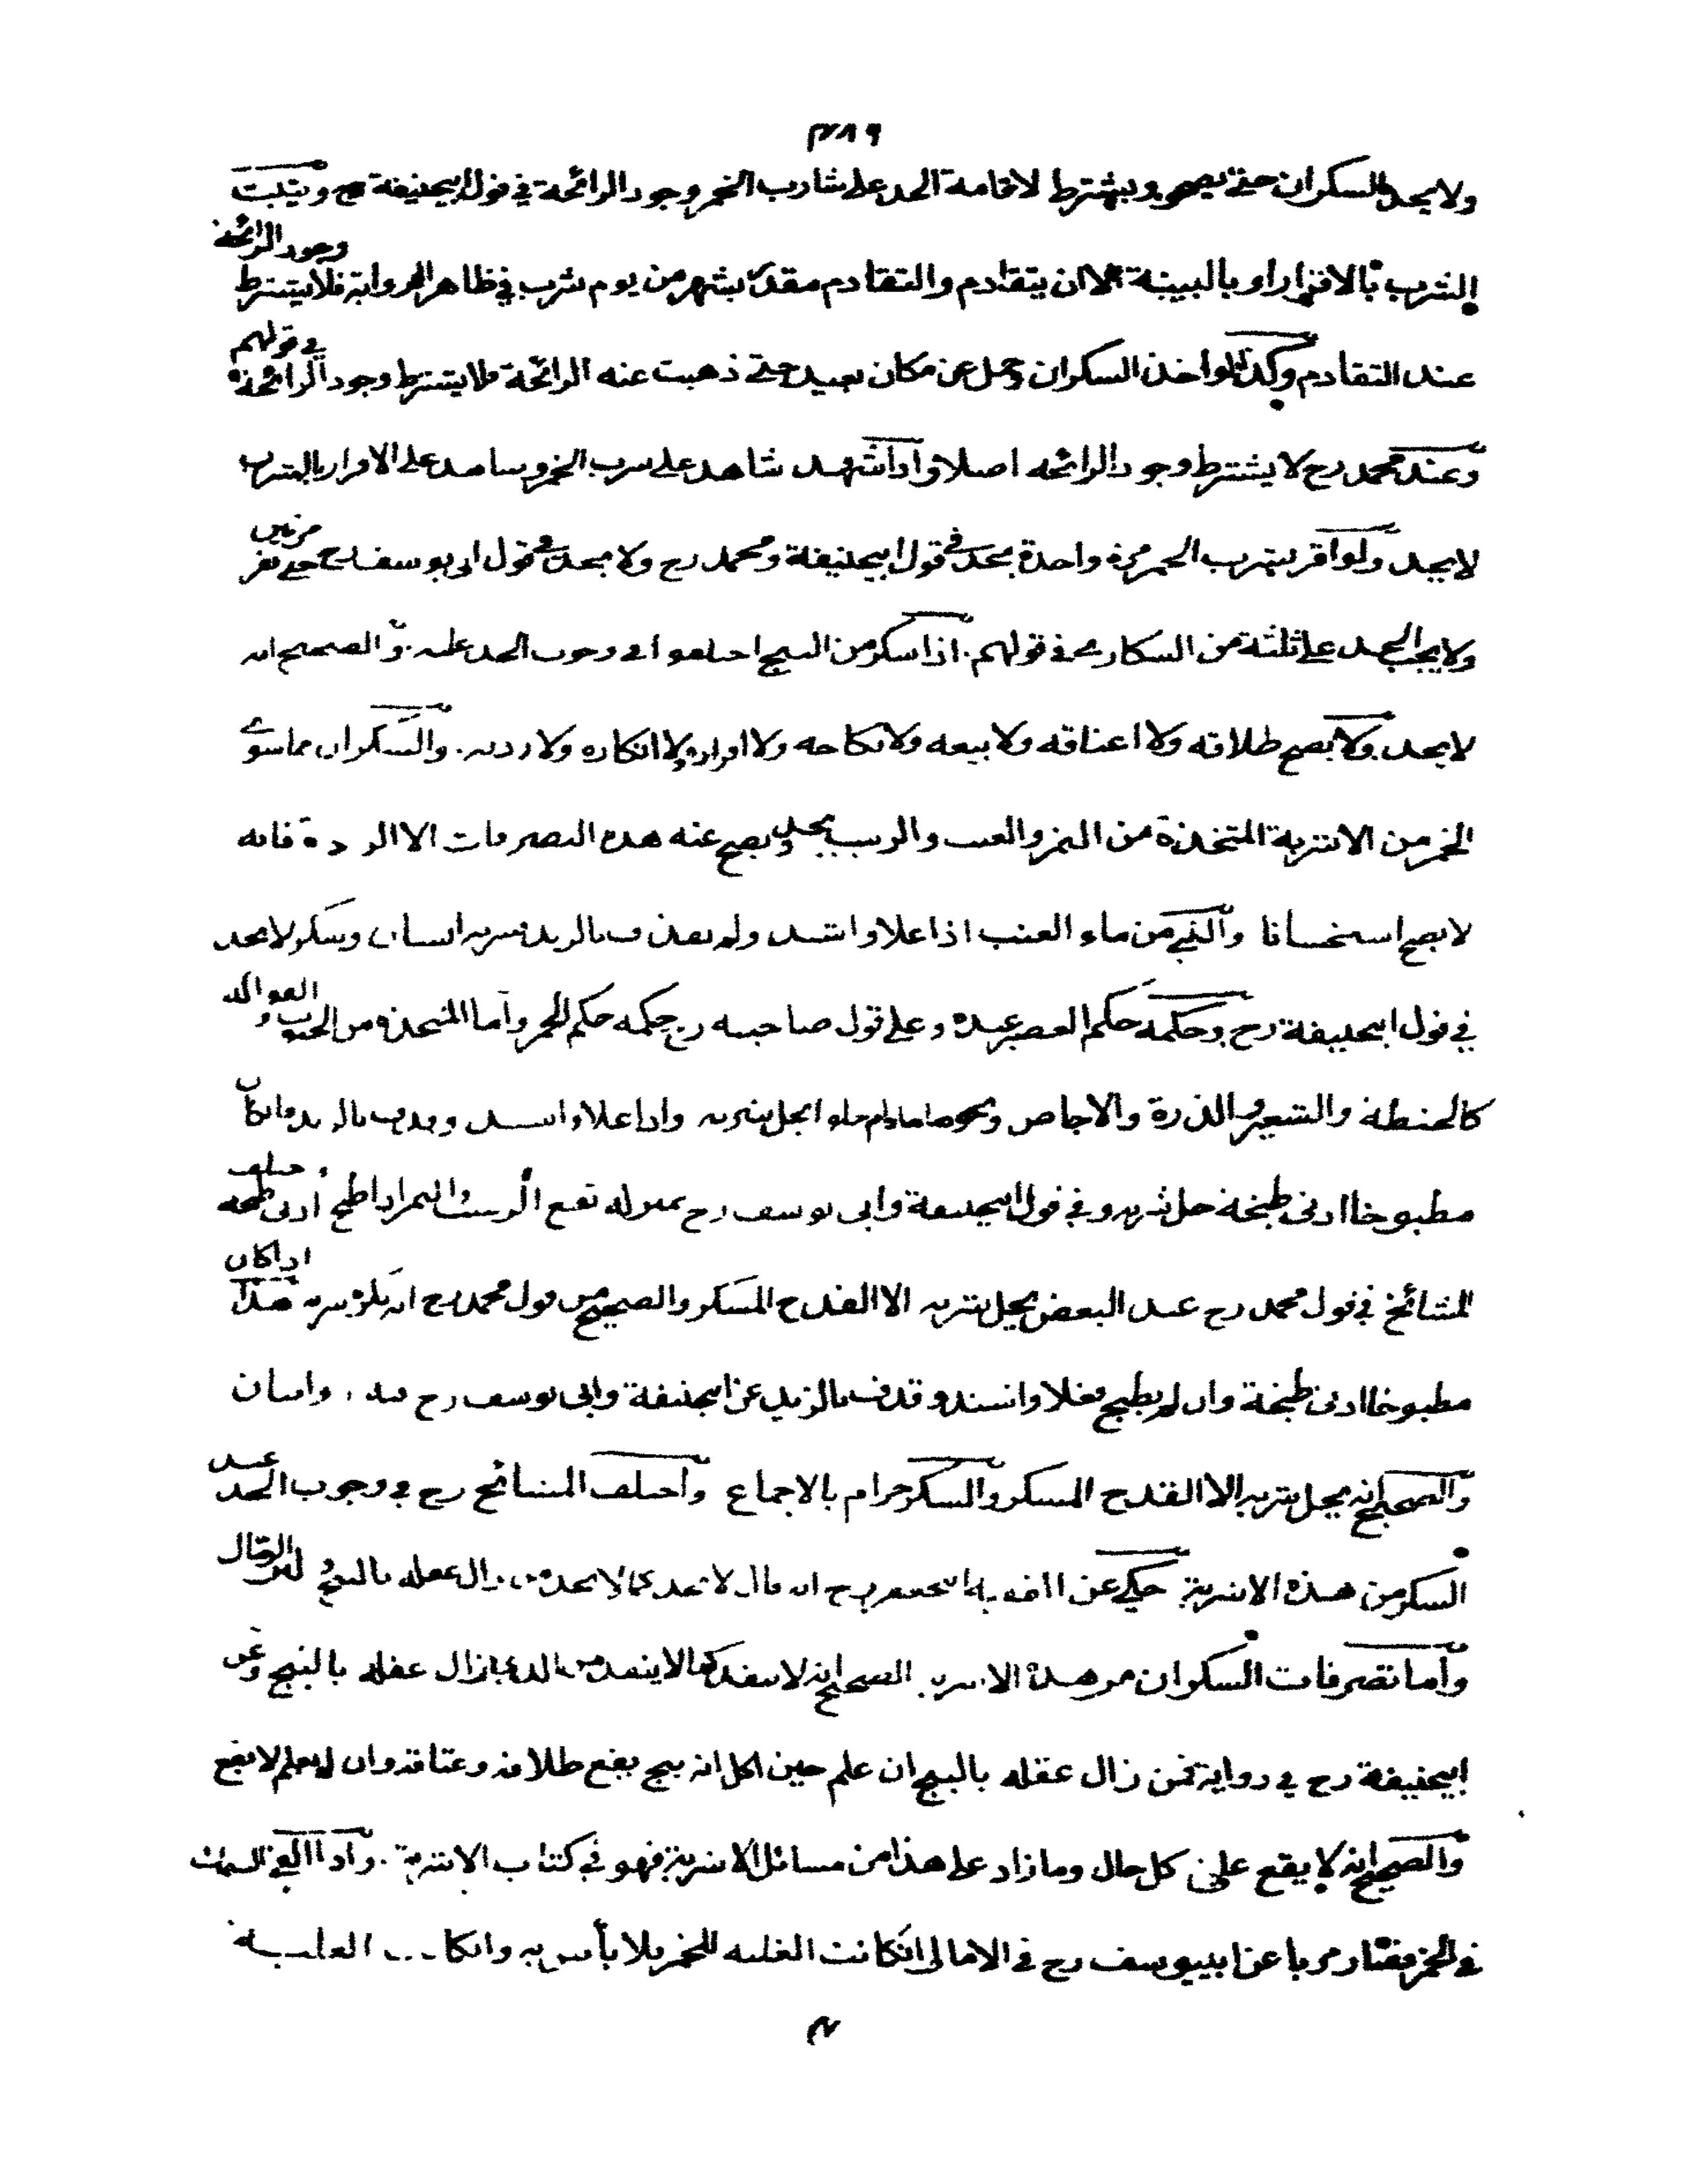 ٣٨٩
ولا يحد السكران حتى يصحو ويشترط لاقامة الحد على شارب الخمر وجود الرائحة في قول ابيحنيفة رح ويثبت
الشرب بالاقرار او بالبينة الا ان يتقادم والتقادم مقدر بشهر من يوم شرب في ظاهر الرواية فلا يشترط وجود الرائحة
عند التقادم وكذا لو اخذ السكران وحمل عن مكان بعيد حتى ذهبت عنه الرائحة فلا يشترط وجود الرائحة في قولهم
وعند محمد رح لا يشترط وجود الرائحة اصلا واذا شهد شاهد على شرب الخمر وشاهد على الاقرار بالشرب
لا يحد ولو اقر بشرب الخمر مرة واحدة يحد في قول ابيحنيفة ومحمد رح ولا يحد في قول ابى يوسف رح حتى يقر مرتين
ولا يجب الحد على ثلثة من السكارى في قولهم. اذا سكر من البنج اختلفوا في وجوب الحد عليه. والصحيح انه
لا يحد ولا يصح طلاقه ولا اعتاقه ولا بيعه ولا نكاحه ولا اقراره ولا انكاره ولا ردته. والسكران مما سوى
الخمر من الاشربة المتخذة من التمر والعنب والزبيب يحد ويصح عنه هذه التصرفات الا الردة فانه
لا يصح استحسانا والنى من ماء العنب اذا غلا واشتد ولم يقذف بالزبد شربه انسان وسكر لا يحد
في قول ابيحنيفة رح وحكمه حكم العصير عنده وعلى قول صاحبيه رح حكمه حكم الخمر واما المتخذة من الحبوب والفواكه
كالحنطة والشعير والذرة والاجاص ونحوها ما دام حلوا يحل شربه واذا غلا واشتد وقذف بالزبد فان كان
مطبوخا ادنى طبخة حل شربه في قول ابيحنيفة وابى يوسف رح بمنزلة نقيع الزبيب والتمر اذا طبخ ادنى طبخة واختلف
المشائخ في قول محمد رح عند البعض يحل شربه الا القدح المسكر والصحيح من قول محمد رح انه يكره شربه هذا اذا كان
مطبوخا ادنى طبخة وان لم يطبخ فغلا واشتد وقذف بالزبد عن ابيحنيفة وابى يوسف رح فيه روايتان
والصحيح انه يحل شربه الا القدح المسكر والسكر حرام بالاجماع واختلف المشائخ رح في وجوب الحد عند
السكر من هذه الاشربة حكي عن الفقيه ابى جعفر رح انه قال لا يحد كما لا يحد من زال عقله بالبنج
واما تصرفات السكران من هذه الاشربة الصحيح انه لا ينفذ كما لا ينفذ من الذى زال عقله بالبنج وعن
ابيحنيفة رح في رواية فمن زال عقله بالبنج ان علم حين اكل انه بنج يقع طلاقه وعتاقه وان لم يعلم لا يقع
والصحيح انه لا يقع على كل حال وما زاد على هذا من مسائل الاشربة فهو في كتاب الاشربة. واذا القى السمك
في الخمر فصار مربا عن ابييوسف رح في الامالى ان كانت الغلبة للخمر بلا بأس به وان كا الغلبة